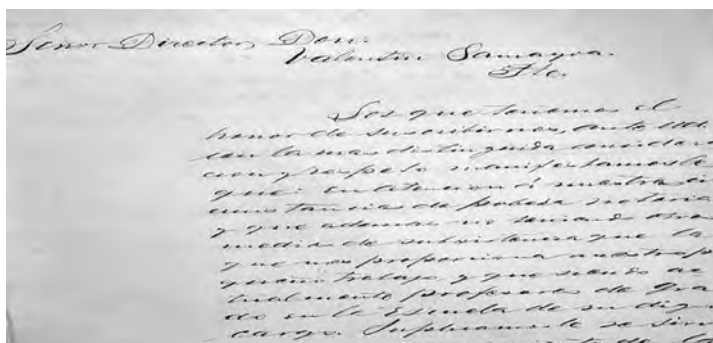 Señor Director, Don.
Valentin Samayoa.
Pte.
Los que tenemos el
honor de suscribirnos, ante Ud.
con la mas distinguida considera
cion y respeto manifestamosle
que: en atencion á nuestra cir
cunstancias de pobresa notoria
y que ademas no teniendo otro
medio de subsistencia que la
que nos proporciona nuestro pe
queño trabajo y que siendo ac
tualmente profesores de gra
do en la Escuela de su digno
cargo. Suplicamosle se sirva
de la